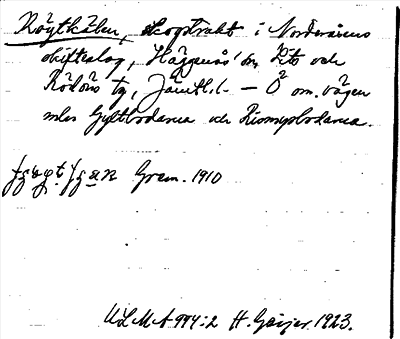 Röytkälen, skogstrakt i Norderåsens
skifteslag, Häggenås sn, Lits och
Rödöns tg, Jämtl. l. — Ö om vägen
mln Gyltbodarna och Kiomysbodarna.
Gram. 1910
ULMA 994:2 H. Geijer. 1923.